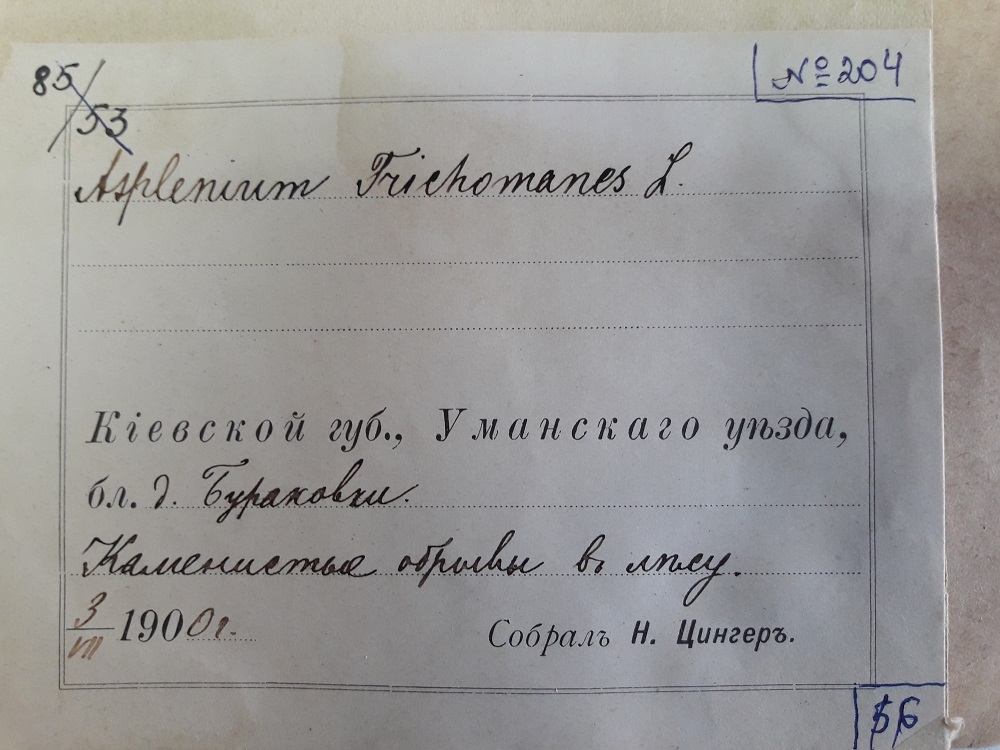 85/53
№ 204
Asplenium Trichomanes L.
Кіевской губ., Уманскаго уѣзда,
бл. д. Бураковки.
Каменистые обрывы въ лѣсу.
3/VII 1900 г.
Собралъ Н. Цингеръ.
56